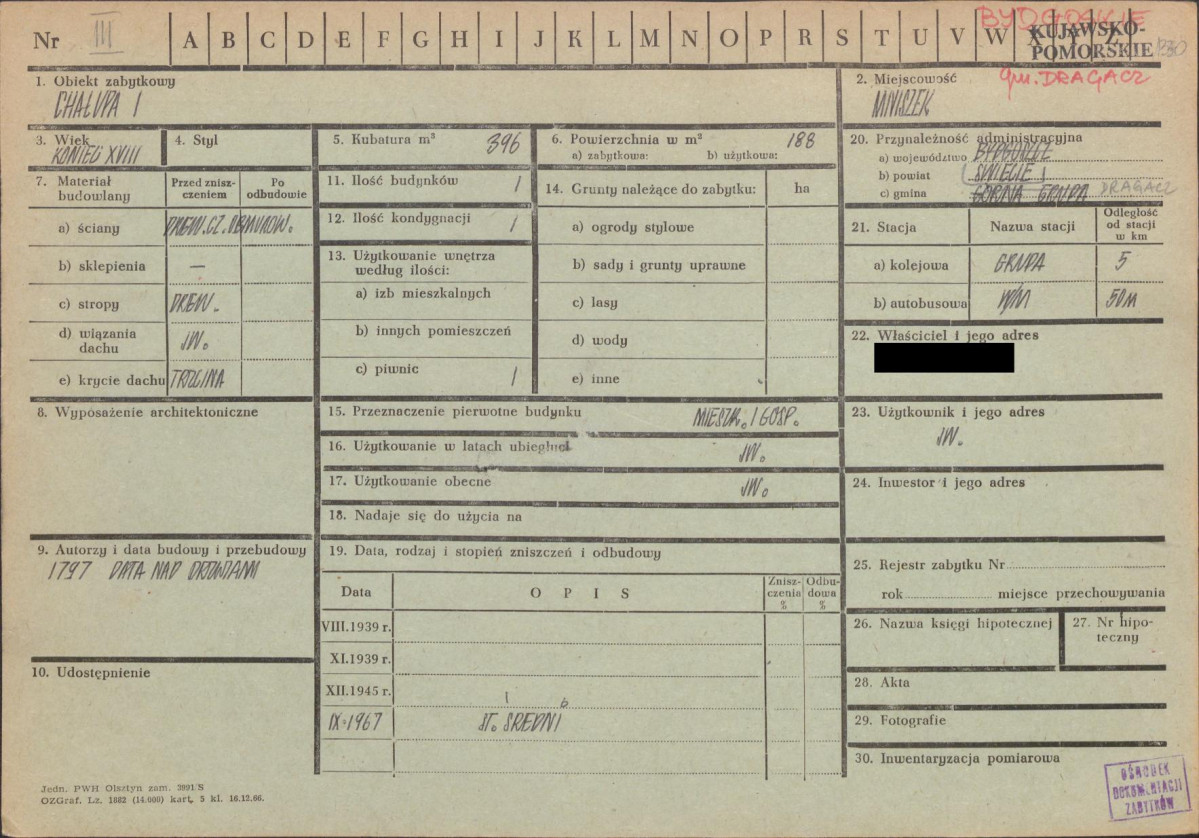 BYDGOSKIE
Nr III A B C D E F G H I J K L M N O P R S T U V W X Y Z
KUJAWSKO-
POMORSKIE
gm. DRAGACZ
1. Obiekt zabytkowy
CHAŁUPA 1
2. Miejscowość
MNISZEK
3. Wiek
KONIEC XVIII
4. Styl
5. Kubatura m³ 396
6. Powierzchnia w m² 188
a) zabytkowa: b) użytkowa:
7. Materiał budowlany
Przed zniszczeniem
Po odbudowie
a) ściany DREW. CZ. OBMUROW.
b) sklepienia —
c) stropy DREW.
d) wiązania dachu JW.
e) krycie dachu TRZCINA
8. Wyposażenie architektoniczne
9. Autorzy i data budowy i przebudowy
1797 DATA NAD DRZWIAMI
10. Udostępnienie
11. Ilość budynków 1
12. Ilość kondygnacji 1
13. Użytkowanie wnętrza
według ilości:
a) izb mieszkalnych
b) innych pomieszczeń
c) piwnic 1
14. Grunty należące do zabytku: ha
a) ogrody stylowe
b) sady i grunty uprawne
c) lasy
d) wody
e) inne
15. Przeznaczenie pierwotne budynku MIESZK. I GOSP.
16. Użytkowanie w latach ubiegłych JW.
17. Użytkowanie obecne JW.
18. Nadaje się do użycia na
19. Data, rodzaj i stopień zniszczeń i odbudowy
Data OPIS Zniszczenia % Odbudowa %
VIII.1939 r.
XI.1939 r.
XII.1945 r.
IX.1967 ST. ŚREDNI
20. Przynależność administracyjna
a) województwo BYDGOSZCZ
b) powiat ŚWIECIE
c) gmina GÓRNA GRUPA DRAGACZ
21. Stacja Nazwa stacji Odległość od stacji w km
a) kolejowa GRUPA 5
b) autobusowa W/M 50 M
22. Właściciel i jego adres
23. Użytkownik i jego adres
JW.
24. Inwestor i jego adres
25. Rejestr zabytku Nr
rok miejsce przechowywania
26. Nazwa księgi hipotecznej
27. Nr hipo-
teczny
28. Akta
29. Fotografie
30. Inwentaryzacja pomiarowa
OŚRODEK
DOKUMENTACJI
ZABYTKÓW
Jedn. PWH Olsztyn zam. 3991/S
OZGraf. Lz. 1882 (14.000) kart. 5 kl. 16.12.66.